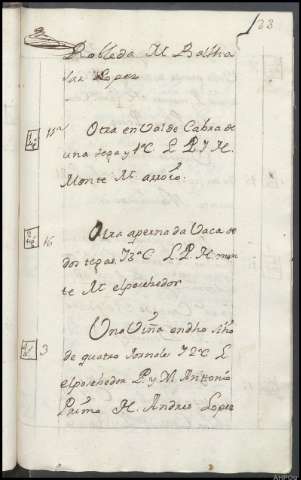 23
Robleda M. Baltha
sar Lopez
15 Otra en Val de Cabra de
una tega y 1ª C L P. y H.
Monte M. arroyo.
16 Otra a pena da Vaca de
dos tegas 73ª C L P. H. mon
te M. el posehedor
3 Una Viña en dho sitio
de quatro Jornales 72ª C L
el posehedor P. y M. Anttonio
Prieto H. Andres Lopez